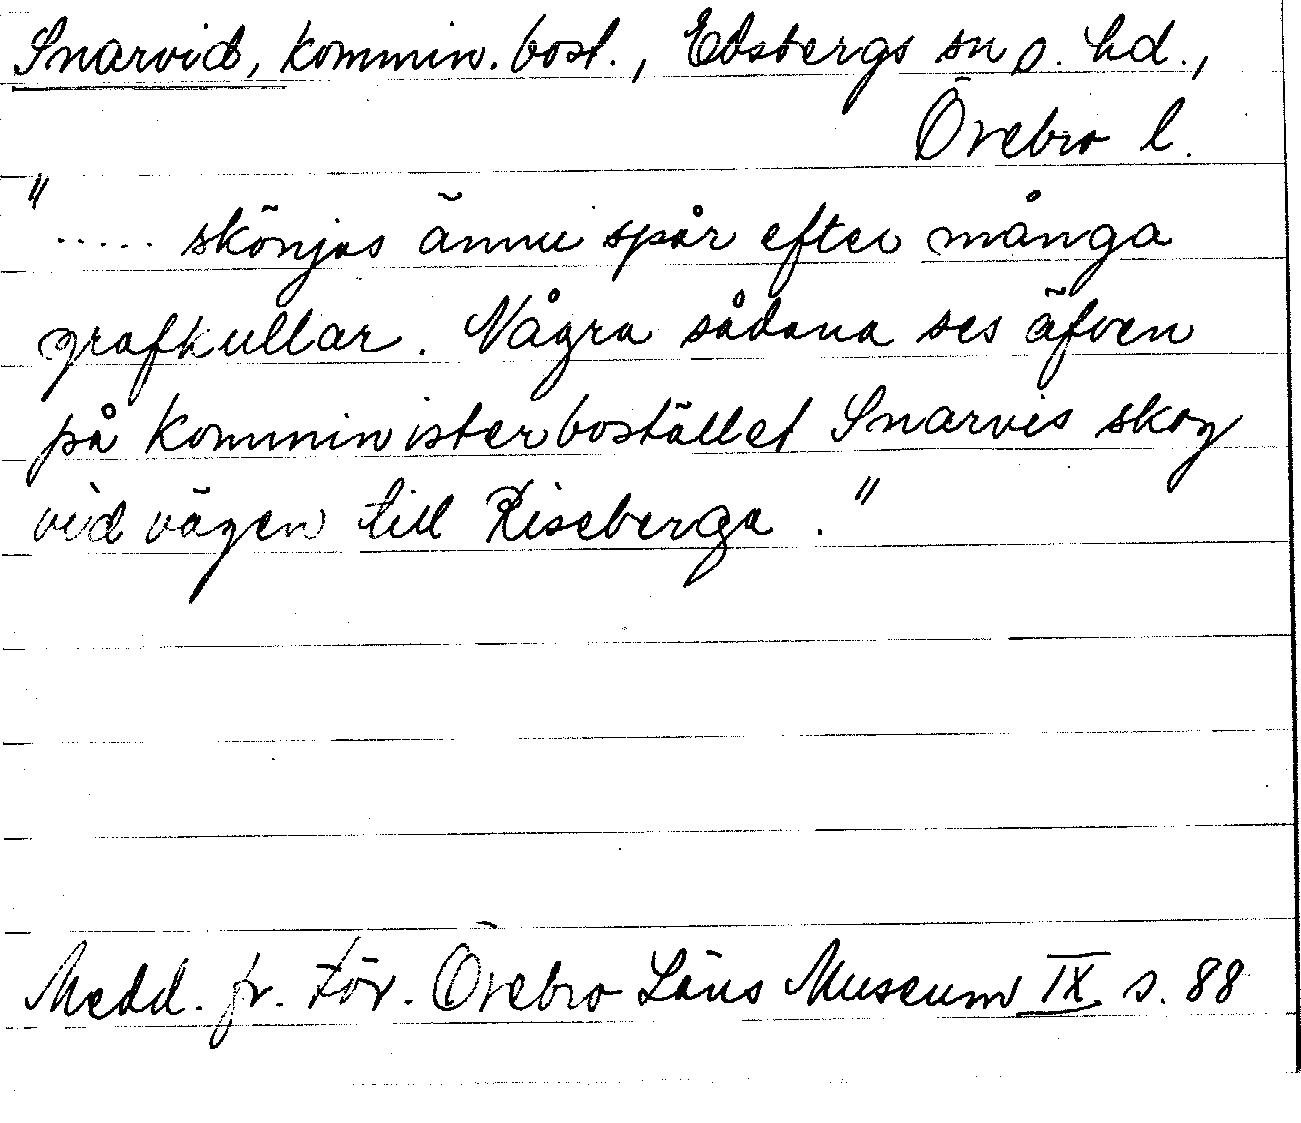 Snarvid, kommin. bost., Edsbergs sn o. hd.,
Örebro l.
"..... skönjas ännu spår efter många
grafkullar. Några sådana ses äfven
på komministerbostället Snarvis skog
vid vägen till Riseberga."
Medd. fr. För. Örebro Läns Museum IX s. 88